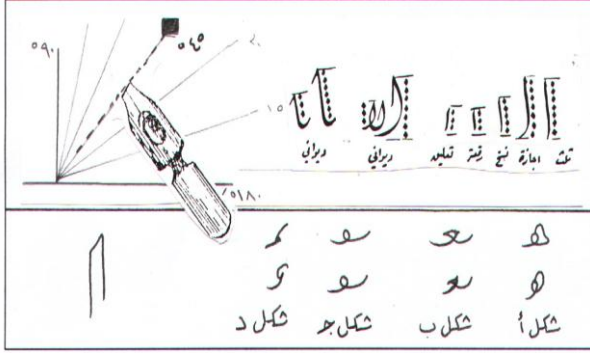 ٩٠°
٤٥°
٢٠
١٥
١٨٠°
ثلث اجازة نسخ رقعة تعليق ديواني ديواني
شكل أ شكل ب شكل ج شكل د